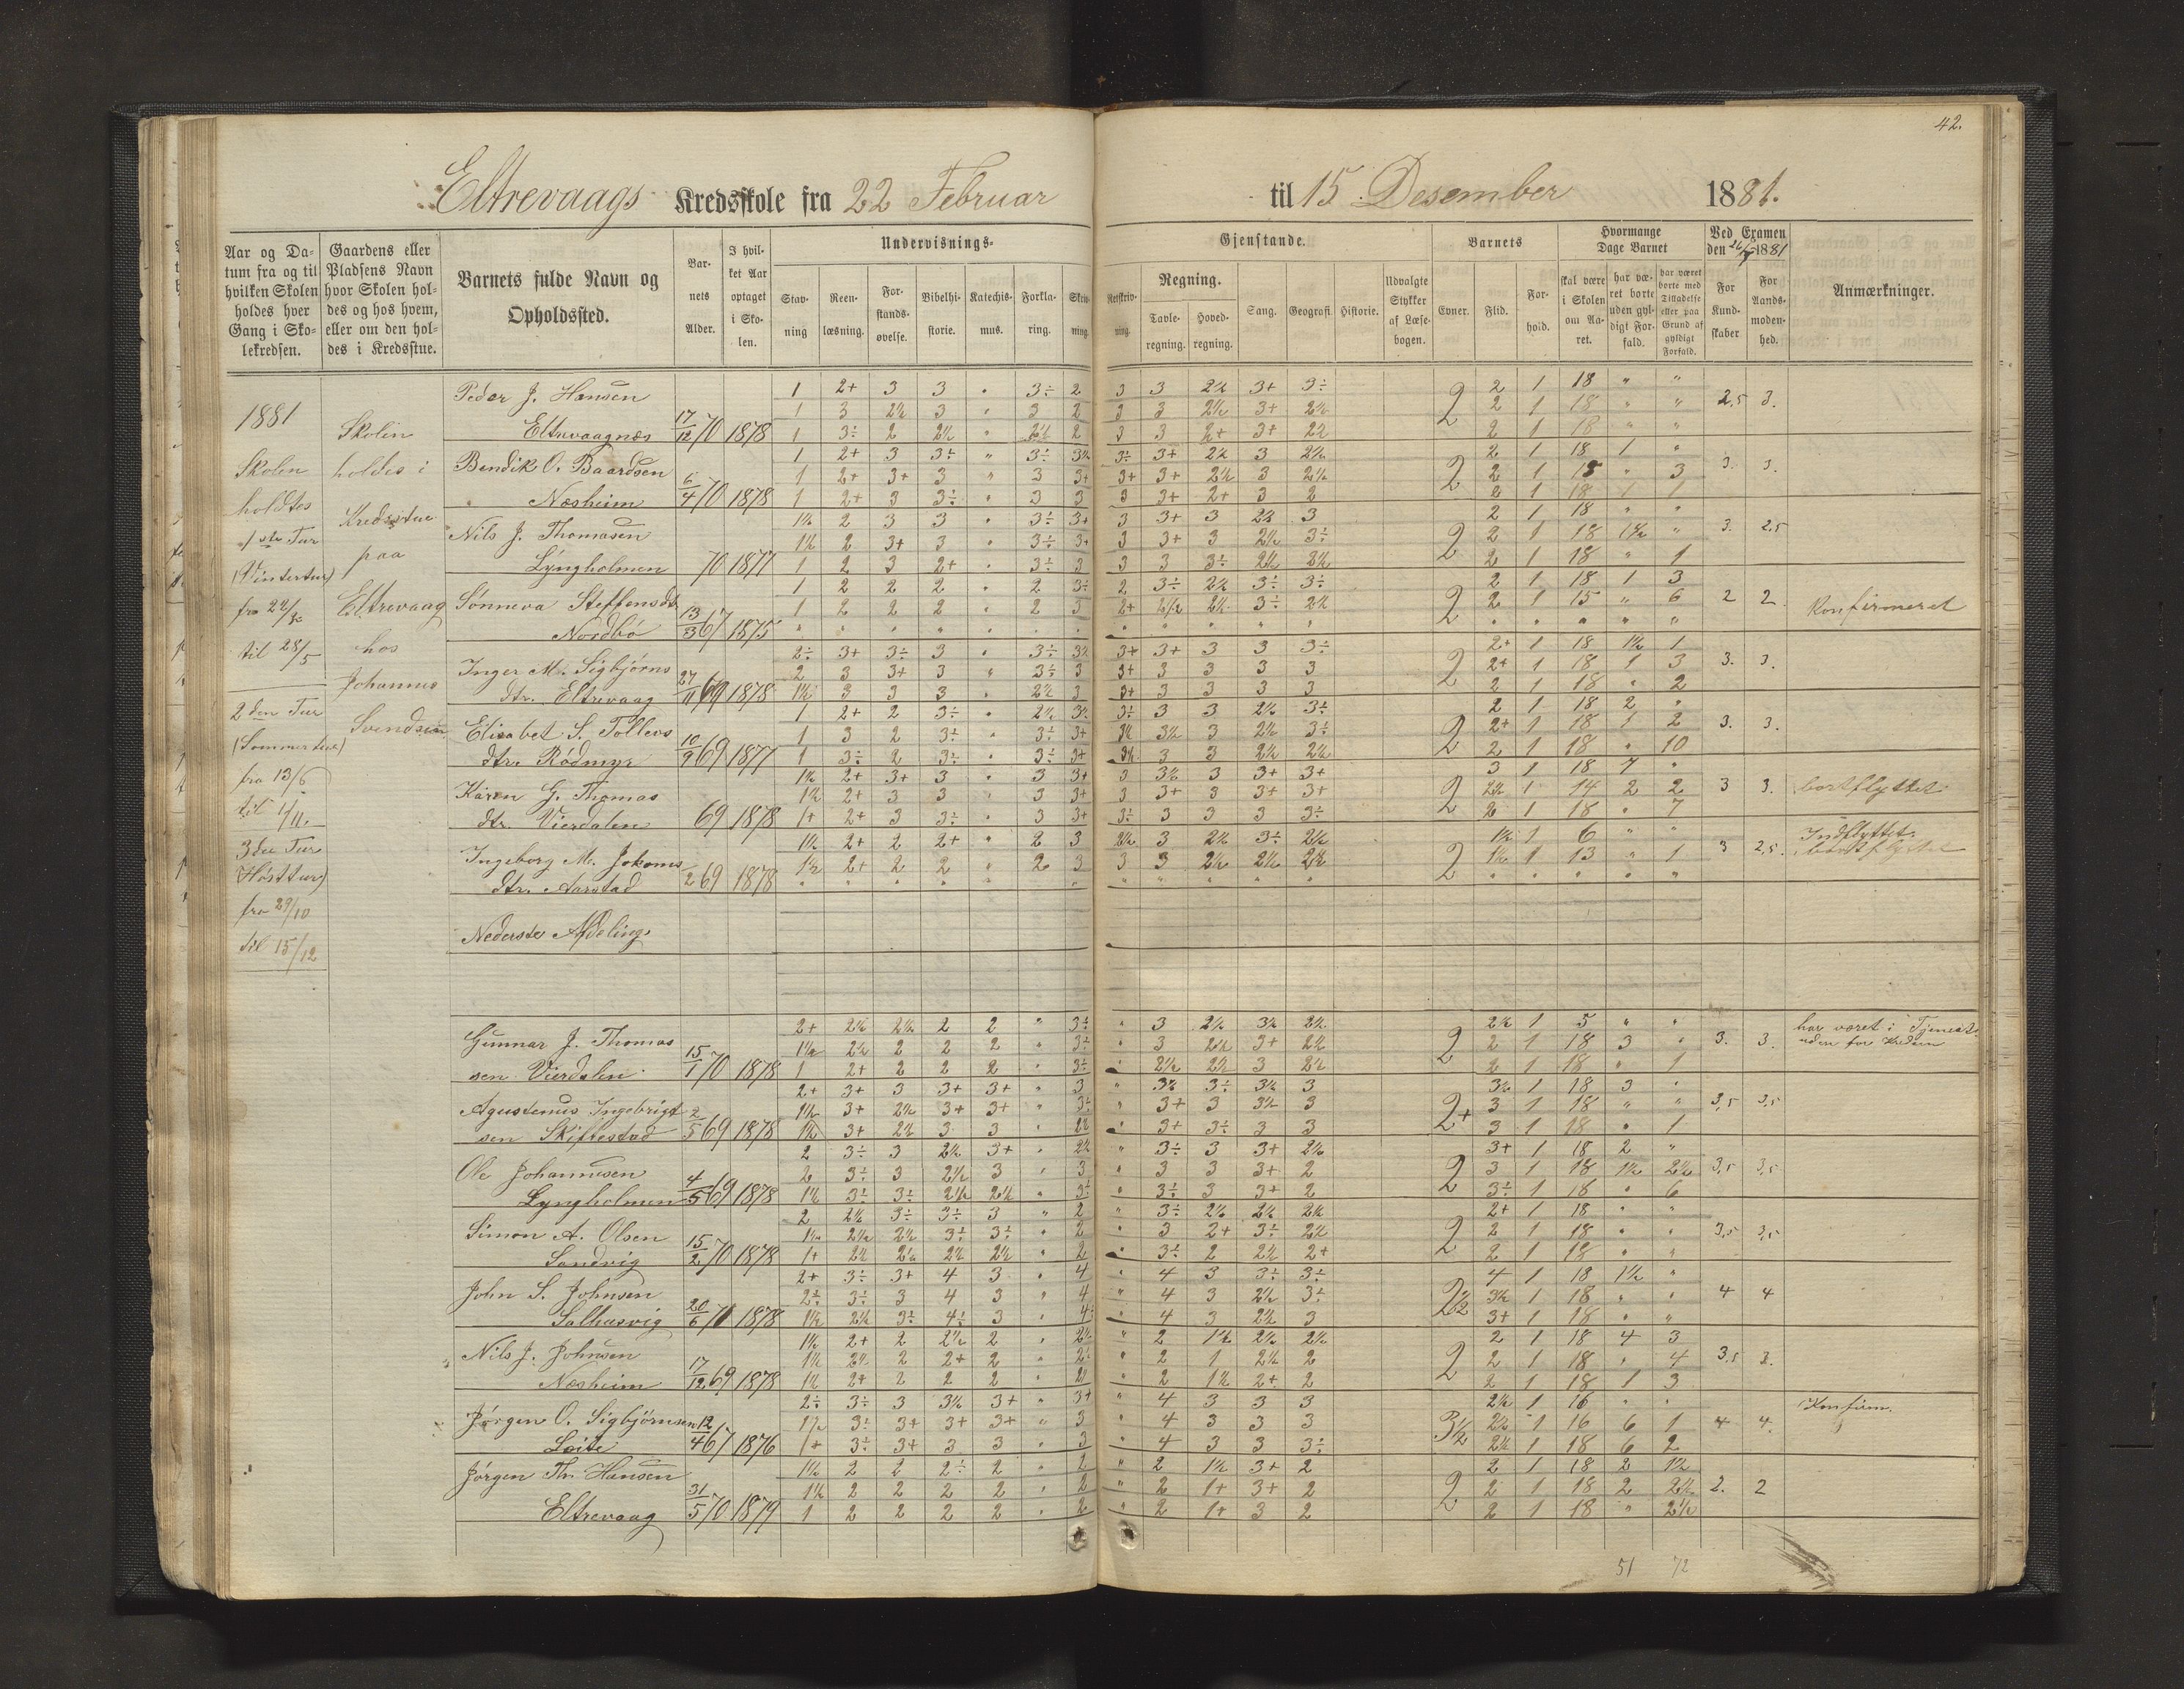 42.
Eltrevaags Kredsskole fra 22 Februar til 15 Desember 1881.
Aar og Da-
tum fra og til
hvilken Skolen
holdes hver
Gang i Sko-
lekredsen.
Gaardens eller
Pladsens Navn
hvor Skolen hol-
des og hos hvem,
eller om den hol-
des i Kredsstue.
Barnets fulde Navn og
Opholdssted.
Bar-
nets
Alder.
I hvil-
ket Aar
optaget
i Sko-
len.
Undervisnings-
Stav-
ning
Reen-
læsning.
For-
stands-
øvelse.
Bibelhi-
storie.
Katechis-
mus.
Forkla-
ring.
Skriv-
ning.
Gjenstande.
Retskriv-
ning.
Regning.
Tavle-
regning.
Hoved-
regning.
Sang.
Geografi.
Historie.
Udvalgte
Stykker
af Læse-
bogen.
Barnets
Evner.
Flid.
For-
hold.
Hvormange
Dage Barnet
skal være
i Skolen
om Aa-
ret.
har væ-
ret borte
uden gyl-
digt For-
fald.
har været
borte med
Tilladelse
eller paa
Grund af
gyldigt
Forfald.
Ved Examen
den 1881
For
Kund-
skaber
For
Aands-
moden-
hed.
Anmærkninger.
1881
Skolen
holdtes
1ste Tur
(Vintertur)
til 28/5
2den Tur
(Sommertur)
fra 13/6
til 1/11.
3die Tur
(Hösttur)
fra 29/10
til 15/12
Skolen
holdes i
Kredsstue
paa
Eltrevaag
hos
Johannes
Svendsen
Peder J. Hansen
Eltrevaagnæs 17/12 70 1878
1 2+ 3 3 " 3÷ 2 3 3 2½ 3+ 3÷ 2 2 1 18 " "
1 3 2½ 3 " 3 2 3 3 2½ 3+ 2½ 2 1 18 " " 2,5 3.
1 3÷ 2 2½ " 2½ 2 3 3 2+ 3+ 2½ 2 1 18 " "
Bendik O. Baardsen
Næsheim 6/4 70 1878
1 2+ 3 3÷ " 3÷ 3½ 3÷ 3+ 2½ 3 2½ 2 2 1 18 1 "
1 2+ 3+ 3 " 3 3+ 3+ 3+ 2½ 3 2½ 2 1 15 " 3 3. 3.
1 2+ 3 3÷ " 3 3 3 3+ 2+ 3 2 2 1 18 1 1
Nils J. Thomasen
Lyngholmen 70 1877
1½ 2 3 3 " 3÷ 3+ 3 3+ 3 2½ 3 2 2 1 18 " "
1½ 2 3+ 3 " 3÷ 3+ 3 3+ 3 2½ 3÷ 2 1 18 1½ " 3. 2,5
1 2 3 2+ " 3÷ 3 3 3 3÷ 2½ 3½ 2 1 18 " 1
Sönneva Steffensdtr
Nordbö 13/3 67 1875
1 2 2 2 " 2 3÷ 2 3÷ 2½ 3÷ 3÷ 2 2 1 18 1 3
1 2 2 2 " 2 3 2+ 2½ 2½ 3÷ 2½ 2 1 15 " 6 2 2 Konfirmeret
Inger M. Sigbjörns
dtr. Eltrevaag 27/11 69 1878
2÷ 3+ 3÷ 3 " 3÷ 3½ 3+ 3+ 3 3 3÷ 2 2+ 1 18 1½ 1
2 3 3+ 3 " 3÷ 3 3+ 3 3 3 3 2+ 1 18 1 3 3. 3.
1½ 3 3 3 " 2½ 3 3+ 3 3 3 3 2 1 18 " 2
Elisabet S. Tollevs
dtr. Rödmyr 10/9 69 1877
1 2+ 2 3÷ " 2½ 3½ 3÷ 3 3 2½ 3÷ 2 2 1 18 2 "
1 3 2 3÷ " 3÷ 3+ 3½ 3½ 3 2½ 3÷ 2+ 1 18 1 2 3. 3.
1 3÷ 2 3÷ " 3÷ 3+ 3½ 3 3 2½ 2½ 2 1 18 " 10
Karen G. Thomas
dtr. Vierdalen 69 1878
1½ 2+ 3+ 3 " 3 3+ 3 3½ 3 3+ 3+ 2 3 1 18 7 "
1½ 2+ 3 3 " 3 3+ 3 3+ 3 3+ 3+ 2½ 1 14 2 2 3 3. bortflyttet
1+ 2+ 3 3÷ " 3 3+ 3÷ 3 3 3 3÷ 2 1 18 " 7
Ingeborg M. Johans
dtr. Aarstad 2 69 1878
1½ 2+ 2 2+ " 2 3 2½ 3 2½ 3÷ 2½ 2 1½ 1 6 " " Indflyttet.
1½ 2+ 2 2 " 2 3 3 3 2½ 2½ 2½ 1½ 1 13 " 1 3 2,5. bortflyttet
Nederste Afdeling.
Gunnar J. Thomas
sen Vierdalen 15/1 70 1878
2+ 2½ 2½ 2 2 " 3÷ " 3 2½ 3½ 2½ 2 2½ 1 5 " " har været i Tjeneste
1½ 2½ 2 2 2 " 3÷ " 3 2½ 3+ 2½ 2 1 18 3 " 3. 3. uden for Kredsen
1 2+ 2 2 2 " 3÷ " 2½ 2½ 3 2½ 2 1 18 " 1
Agustenus Ingebrigt
sen Skiftestad 2/5 69 1878
2+ 3+ 3 3+ 3+ " 3 " 3½ 3÷ 3½ 3 2+ 3½ 1 18 3 "
1½ 3+ 2½ 3+ 3+ " 3÷ " 3+ 3 3½ 3 3 1 18 " " 3,5 3,5
1½ 3+ 2½ 3 3 " 2½ " 3+ 3÷ 3 3 3 1 18 " 1
Ole Johannesen
Lyngholmen 4/5 69 1878
2 3÷ 3 2½ 3+ " 2½ " 3÷ 3 3+ 2½ 2 3+ 1 18 2 "
2 3÷ 3 2½ 3 " 3 " 3 3 3+ 2 3 1 18 1½ 2½ 3,5 3,5
1½ 3÷ 3÷ 2½ 2½ " 3÷ " 3÷ 3 3+ 2 3÷ 1 18 " 6
Simon A. Olsen
Sandvig 15/2 70 1878
2 2½ 3÷ 3÷ 3 " 2 " 3÷ 2½ 2½ 2½ 2 2+ 1 18 " "
1½ 2½ 2½ 3÷ 3÷ " 2 " 3 2+ 3÷ 2½ 2 1 18 " " 3,5 3,5
1+ 2½ 2½ 2½ 2½ " 2 " 3÷ 2 2½ 2+ 2 1 18 " "
John S. Johnsen
Salhusvig 20/6 70 1878
2+ 3÷ 3+ 4 3 " 4 " 4 3 3÷ 3÷ 2½ 4 1 18 1½ "
2÷ 3÷ 3 4 3 " 4 " 4 3 2½ 3÷ 3½ 1 18 " " 4 4
1½ 2½ 3÷ 4÷ 3 " 4÷ " 4 3 2½ 3 3+ 1 18 " "
Nils J. Johnsen
Næsheim 17/12 69 1878
1½ 2+ 2 2½ 2 " 2½ " 2 1½ 2½ 2½ 2 2 1 18 4 3
1½ 2½ 2 2+ 2 " 2½ " 2 1 2½ 2 2 1 18 " 4 3,5 3.
1½ 2+ 2 2 2 " 2½ " 2 1½ 2+ 2 2 1 18 1 3
Jörgen O. Sigbjörnsen
Loite 12/4 67 1876
2÷ 3÷ 3 3½ 3+ " 3+ " 4 3 3 3 3½ 2½ 1 16 " " Konfirm.
1½ 3÷ 3+ 3+ 3+ " 3 " 4 3 3 3 2½ 1 16 6 1 4 4.
1+ 3÷ 3+ 3 3 " 3 " 4 3 3 3÷ 2½ 1 18 6 2
Jörgen Th. Hansen
Eltrevaag 31/5 70 1879
1½ 2 2 2÷ 2 " 2 " 2 1½ 3+ 2 2 2 1 18 2 1½
1½ 2 2 2 2 " 2 " 2 1+ 3+ 2 2 1 18 2 2½ 2. 2
1 2 2 2 2 " 2 " 2 1+ 3 2 2 1 18 " 2½
51 72